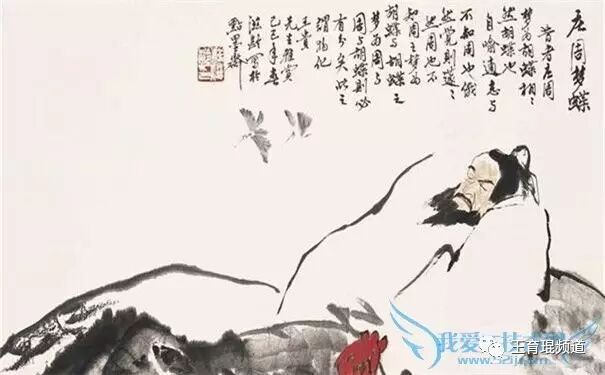 庄周梦蝶
昔者庄周
梦为胡蝶栩〻
然胡蝶也
自喻适志与
不知周也俄
然觉则蘧〻
然周也不
知周之梦为
胡蝶与胡蝶之
梦为周与
周与胡蝶则必
有分矣此之
谓物化
王贵
先生雅赏
己巳年春
我爱
王育琨频道